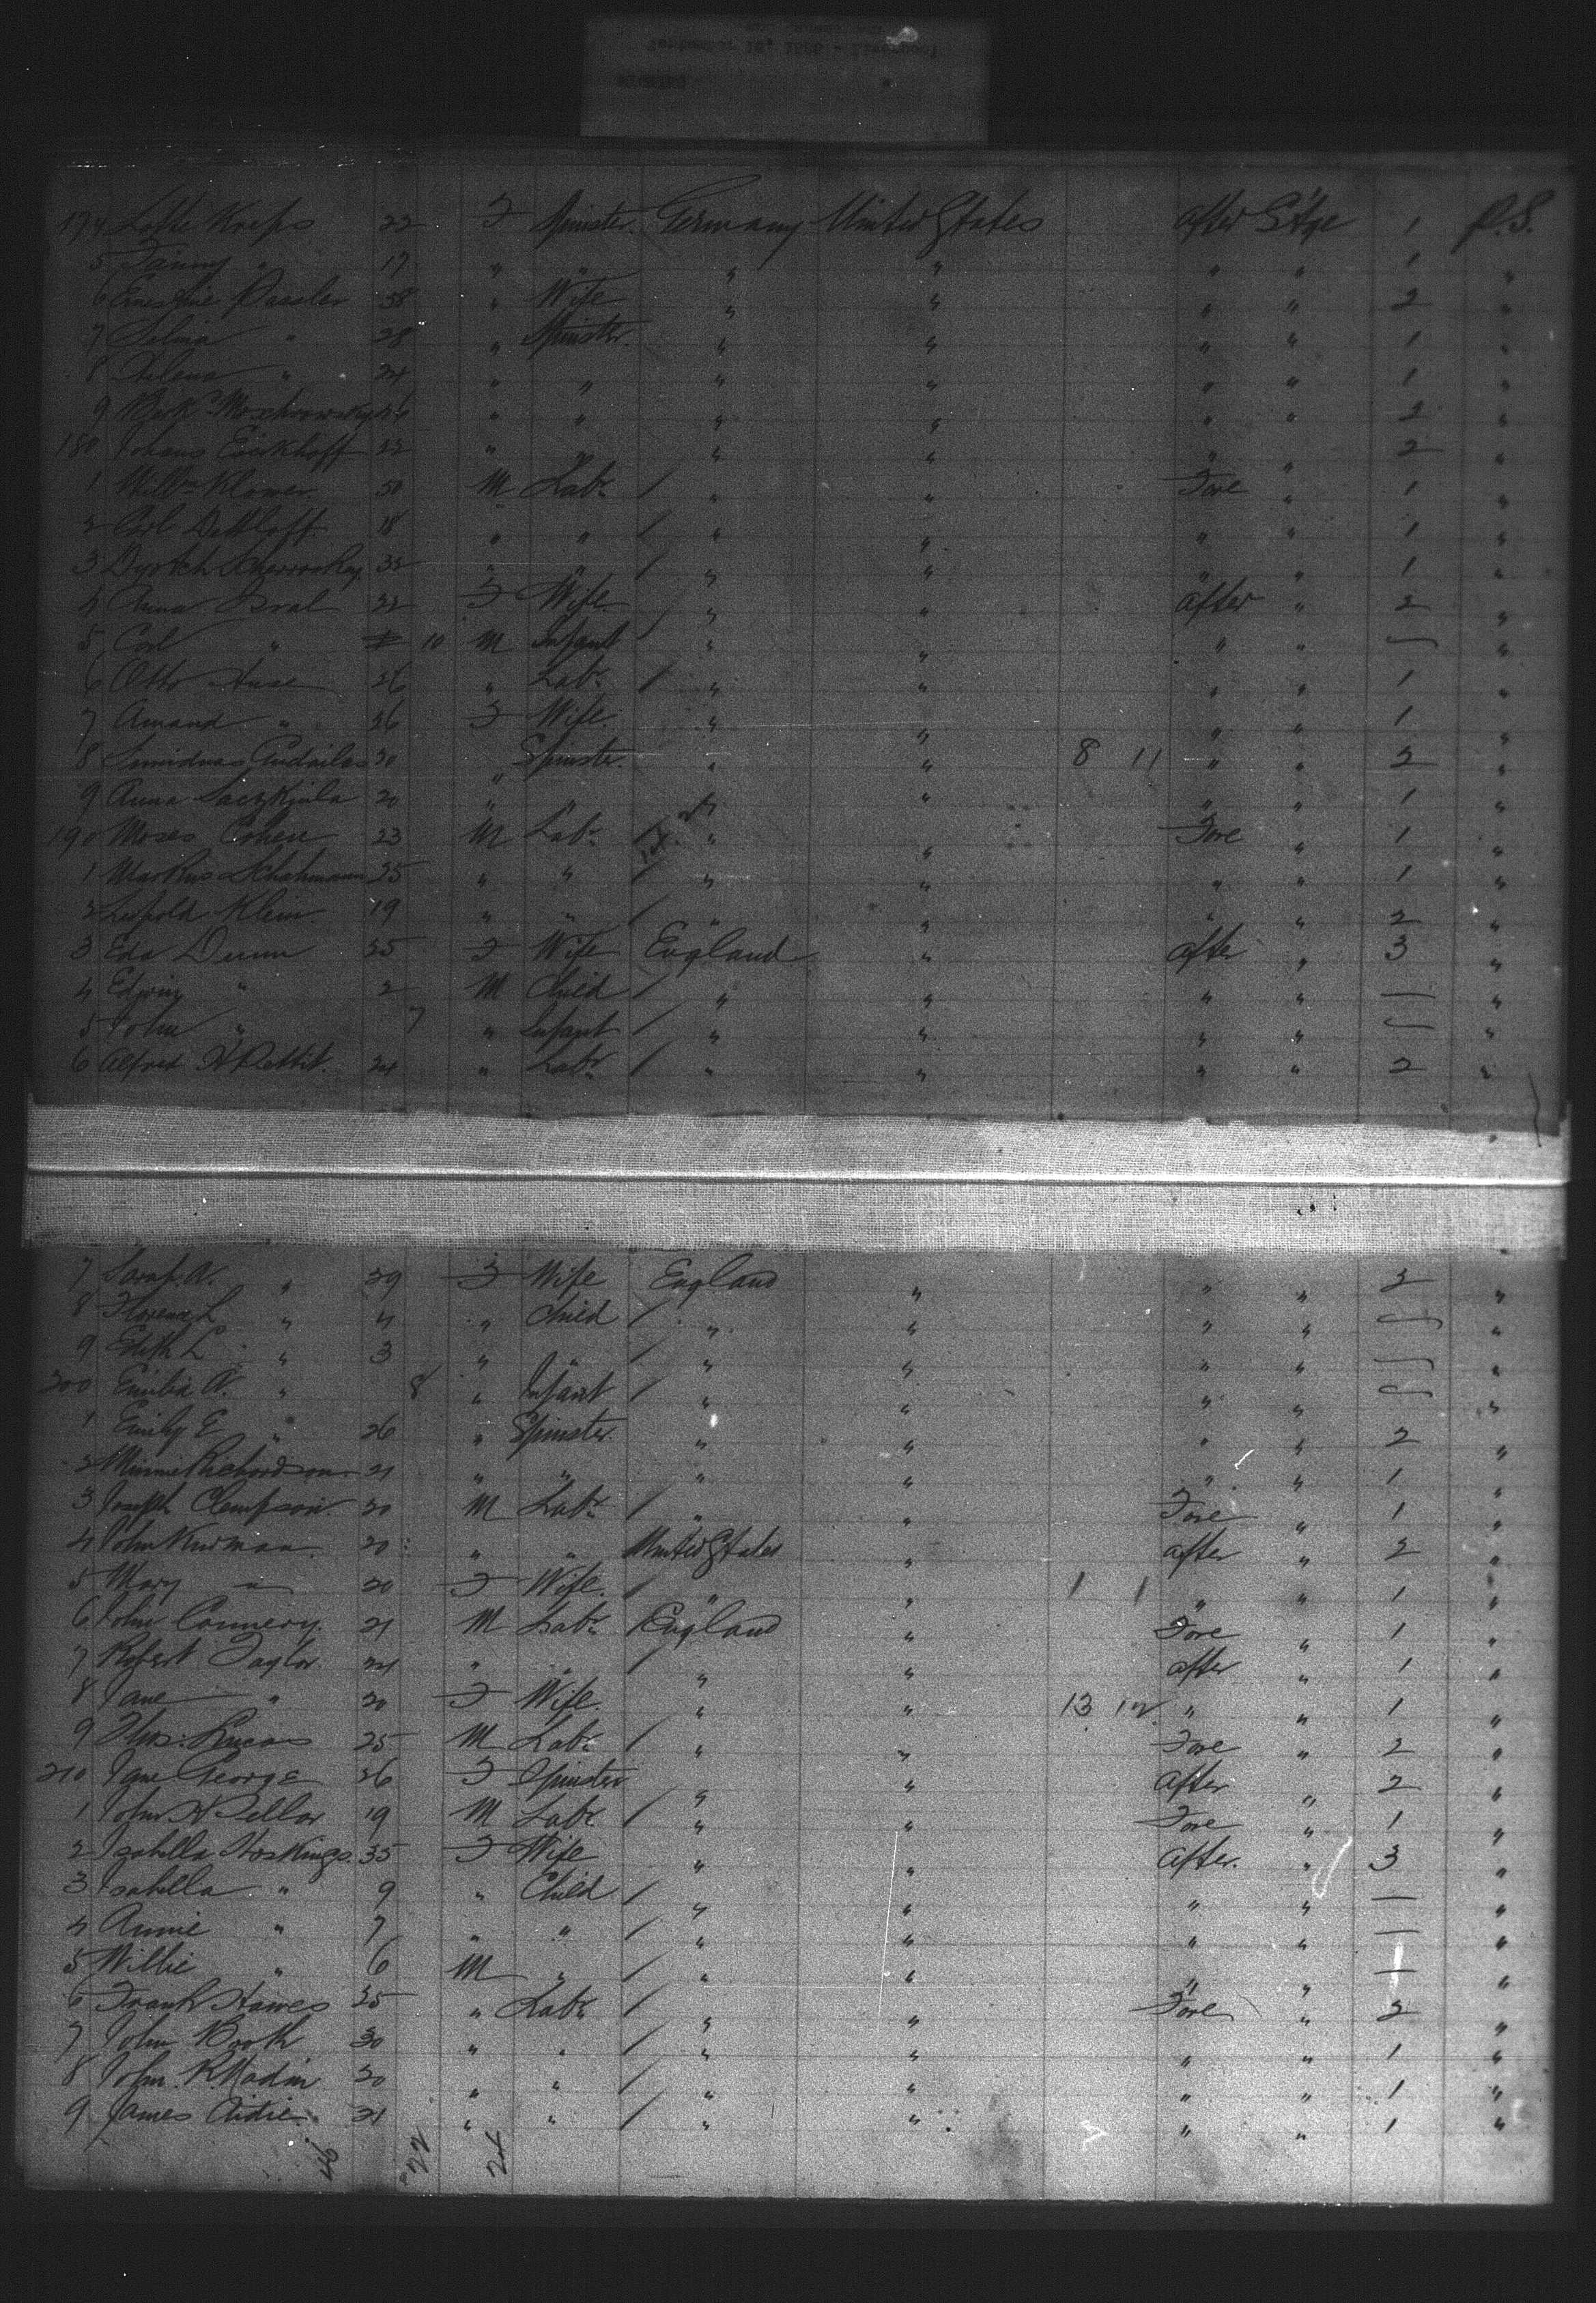 174 Lotte Kreps 22 F Spinster. Germany United States after St'ge 1 P.S.
5 Fanny " 17 " " " " " " 1 "
6 Ernestine Paesler 58 " Wife " " " " 2 "
7 Selma " 28 " Spinster. " " " " 1 "
8 Helena " 24 " " " " " " 1 "
9 " " " " " " 2 "
180 Johans Eickhoff 22 " " " " " " 2 "
1 Willm Klower 50 M Labr / " " Fore " 1 "
2 Carl Dethloff 18 " " / " " " " 1 "
3 35 " " / " " " " 1 "
4 Anna Bral 22 F Wife. / " " after " 2 "
5 Carl " 10 M Infant " " " " — "
6 Otto Huse 26 " Labr / " " " " 1 "
7 Amand " 26 F Wife. " " " " 1 "
8 30 " Spinster. " " 8 11 " " 2 "
9 Anna 20 " " " " " " 1 "
190 Moses Cohen 23 M Labr / " " Fore " 1 "
1 Markus Schahmann 25 " " / " " " " 1 "
2 Leopold Klein 19 " " / " " " " 2 "
3 Eda Dunn 25 F Wife England " after " 3 "
4 Edwin " 2 M Child / " " " " — "
5 John " 7 " Infant / " " " " — "
6 Alfred H Pettit. 24 " Labr / " " " " 2 "
7 Sarah A. " 29 F Wife England " " " 2 "
8 Florence L " 4 " Child / " " " " — "
9 Edith L " 3 " " / " " " " — "
200 Emilia A. " 8 " Infant / " " " " — "
1 Emily E " 26 " Spinster. " " " " 2 "
2 Minnie Richardson 21 " " " " " " 1 "
3 Joseph Clempson. 20 M Labr / " " Fore " 1 "
4 John Kurman. 20 " " United States " after " 2 "
5 Mary " 20 F Wife. / " " 1 1 " " 1 "
6 John Connery. 21 M Labr / England " Fore " 1 "
7 Robert Taylor. 24 " " / " " after " 1 "
8 Jane " 20 F Wife. " " 13 12 " " 1 "
9 Thos: Lucas 25 M Labr / " " Fore " 2 "
210 Jane George 26 F Spinster " " After " 2 "
1 John H Pellar 19 M Labr / " " Fore " 1 "
2 Isabella Hoskings. 35 F Wife " " After. " 3 "
3 Isabella " 9 " Child / " " " " — "
4 Annie " 7 " " / " " " " — "
5 Willie " 6 M " / " " " " — "
6 Frank Hawes 25 " Labr / " " Fore " 2 "
7 John Booth 30 " " / " " " " 1 "
8 John R. Madin 20 " " / " " " " 1 "
9 James 21 " " / " " " " 1 "
46 22 24